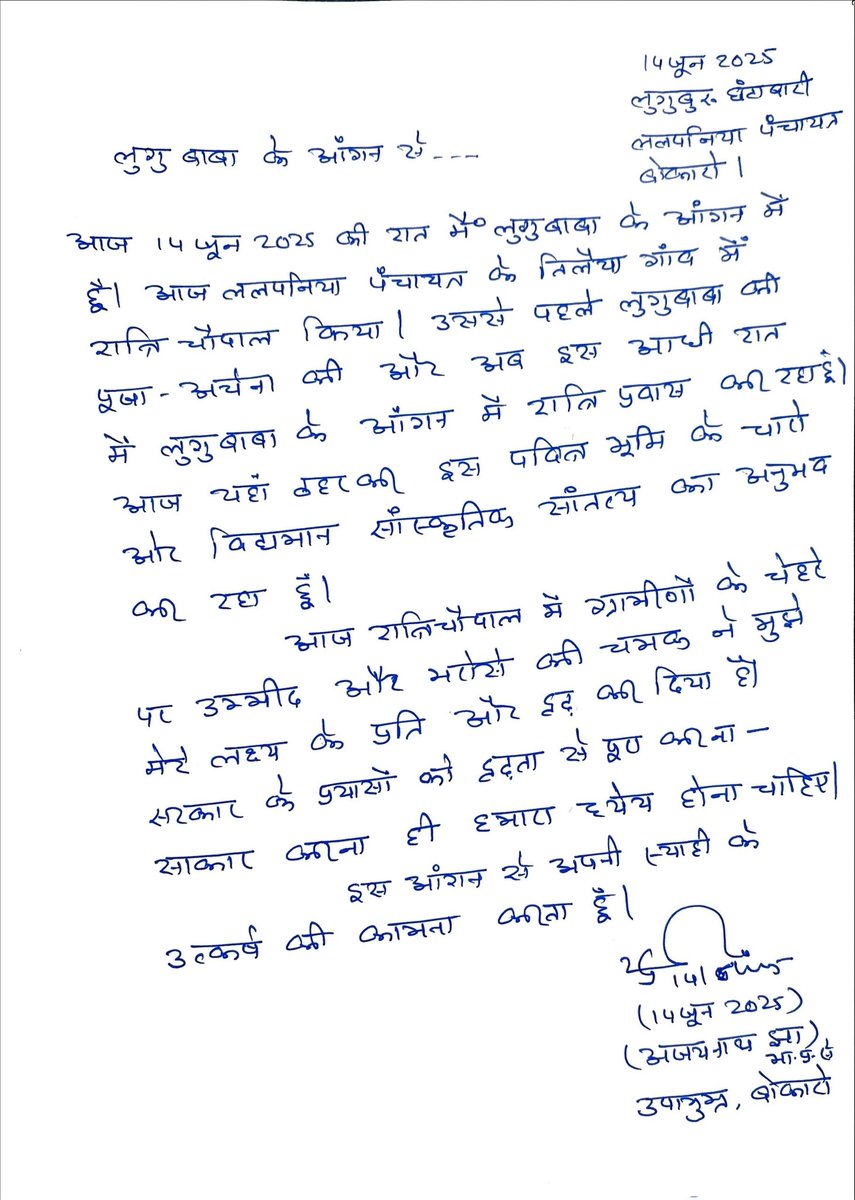 14 जून 2025
लुगुबुरू घंटाबारी
ललपनिया पंचायत
बोकारो।
लुगु बाबा के आँगन से ---
आज 14 जून 2025 की रात मैं लुगुबाबा के आंगन में
हूँ। आज ललपनिया पंचायत के तिलैया गांव में
रात्रि चौपाल किया। उससे पहले लुगुबाबा की
पूजा - अर्चना की और अब इस आधी रात
में लुगुबाबा के आँगन में रात्रि प्रवास कर रहा हूँ।
आज यहाँ ठहरकर इस पवित्र भूमि के चारो
ओर विद्यमान सांस्कृतिक सांतत्य का अनुभव
कर रहा हूँ।
आज रात्रिचौपाल में ग्रामीणों के चेहरे
पर उम्मीद और भरोसे की चमक ने मुझे
मेरे लक्ष्य के प्रति और दृढ़ कर दिया है।
सरकार के प्रयासों को दृढ़ता से पूरा करना –
साकार करना ही हमारा ध्येय होना चाहिए।
इस आंगन से अपनी स्याही के
उत्कर्ष की कामना करता हूँ।
(14 जून 2025)
(अजयनाथ झा)
भा.प्र.से
उपायुक्त, बोकारो